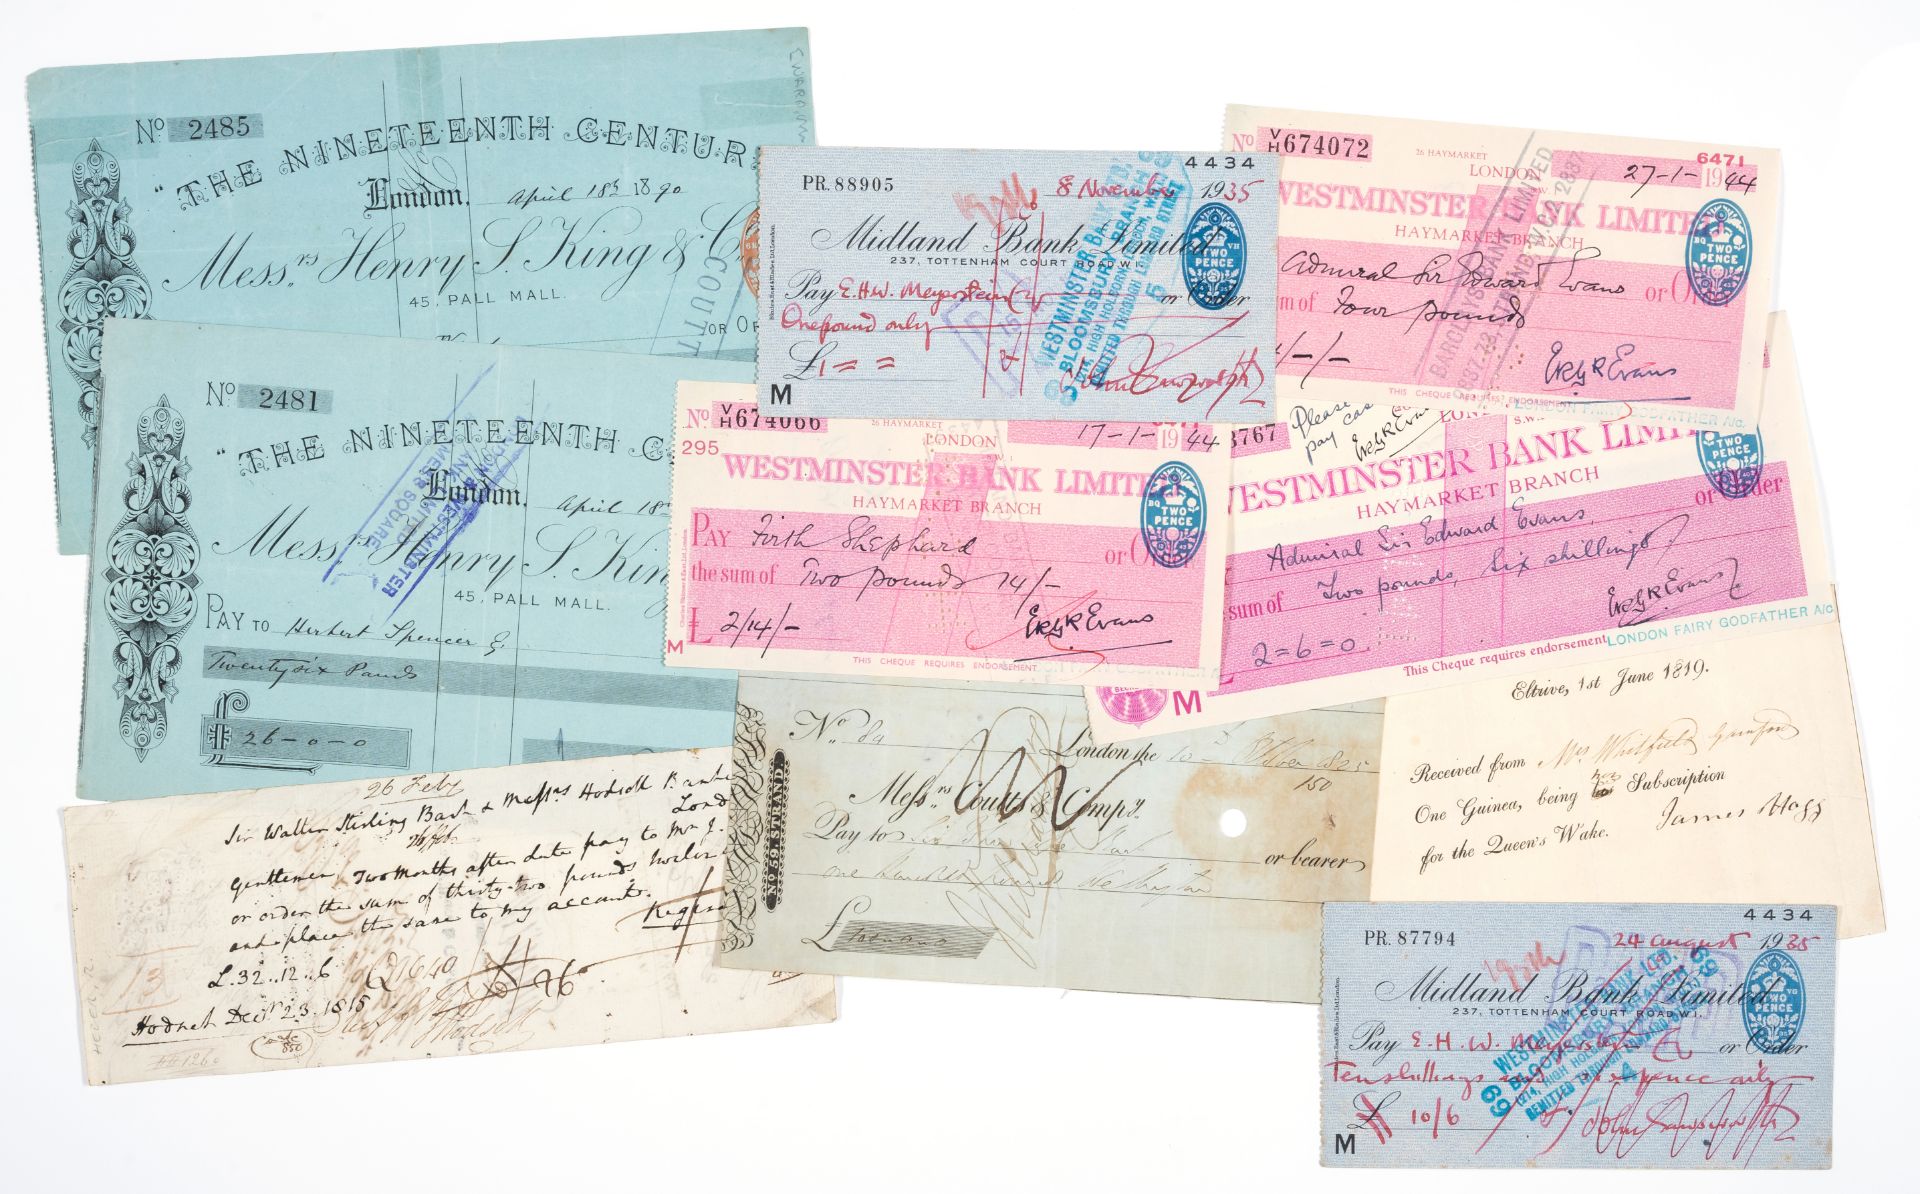 No 2485
"THE NINETEENTH CENTUR
London, April 18th 1890
Messrs Henry S. King & Co
45, PALL MALL.
OR OR
No 2481
"THE NINETEENTH C
London, April 18
Messrs Henry S. Kin
45, PALL MALL.
PAY TO Herbert Spencer
Twenty six Pounds
£ 26-0-0
4434
PR. 88905
8 November 1935
Midland Bank Limited
237, TOTTENHAM COURT ROAD W.1.
Pay E.H.W. Meyerstein or Order
One pound only
£1 = =
M
WESTMINSTER BANK LTD.
BLOOMSBURY BRANCH
1214, HIGH HOLBORN, LONDON, W.C.
REMITTED THROUGH LONDON STREET
No V/H 674072
26 HAYMARKET
LONDON S.W.1
6471
27-1-1944
WESTMINSTER BANK LIMITE
HAYMARKET BRANCH
Admiral Sir Edward Evans or Or
um of Four pounds
/-/-
ERGR Evans
THIS CHEQUE REQUIRES ENDORSEMENT
BARCLAYS BANK LIMITED
LONDON FAIRY GODFATHER A/C.
No V/H 674066
26 HAYMARKET
LONDON
6471
17-1-1944
295
WESTMINSTER BANK LIMITE
HAYMARKET BRANCH
PAY Firth Shephard or Order
the sum of Two pounds 14/-
£ 2/14/-
ERGR Evans
M
THIS CHEQUE REQUIRES ENDORSEMENT
3767
Please
pay cas
ERGR Evan
WESTMINSTER BANK LIMI
HAYMARKET BRANCH
or Order
Admiral Sir Edward Evans
sum of Two pounds, six shillings
£ 2=6=0
ERGR Evans
This Cheque requires endorsement
LONDON FAIRY GODFATHER A/C
M
26 Feby
Sir Walter Stirling Bart & Messrs Hodsoll Banke
Lond
Gentlemen, Two months after date pay to Mr J.
or order the sum of thirty-two pounds twelve
and place the same to my account.
Regina
L.32..12..6
Hodnet Decr 23. 1815
HEBER, R.
No
London the 10
150
Messrs Coutts & Compy.
Pay to
or bearer
one hundred pounds Wellington
£
No 59. STRAND
Eltrive, 1st June 1819.
Received from Mrs Whitfield
One Guinea, being her Subscription
for the Queen's Wake.
James Hogg
4434
PR. 87794
24 August 1935
Midland Bank Limited
237, TOTTENHAM COURT ROAD W.1.
Pay E.H.W. Meyerstein or Order
Ten shillings and sixpence only
£ 10/6
M
69
WESTMINSTER BANK LTD.
BLOOMSBURY BRANCH
1214, HIGH HOLBORN
REMITTED THROUGH LOMBARD ST
69